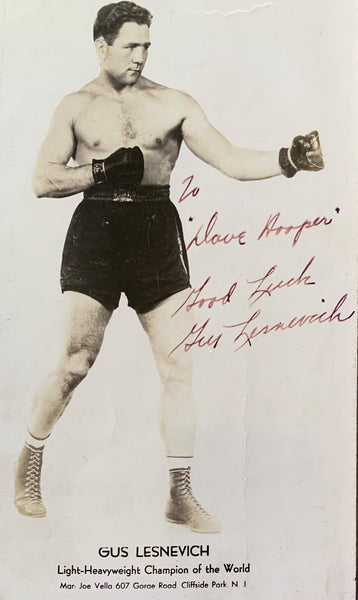 To
"Dave Hooper"
Good Luck
Gus Lesnevich
GUS LESNEVICH
Light-Heavyweight Champion of the World
Mgr. Joe Vella 607 Gorge Road Cliffside Park. N. J.